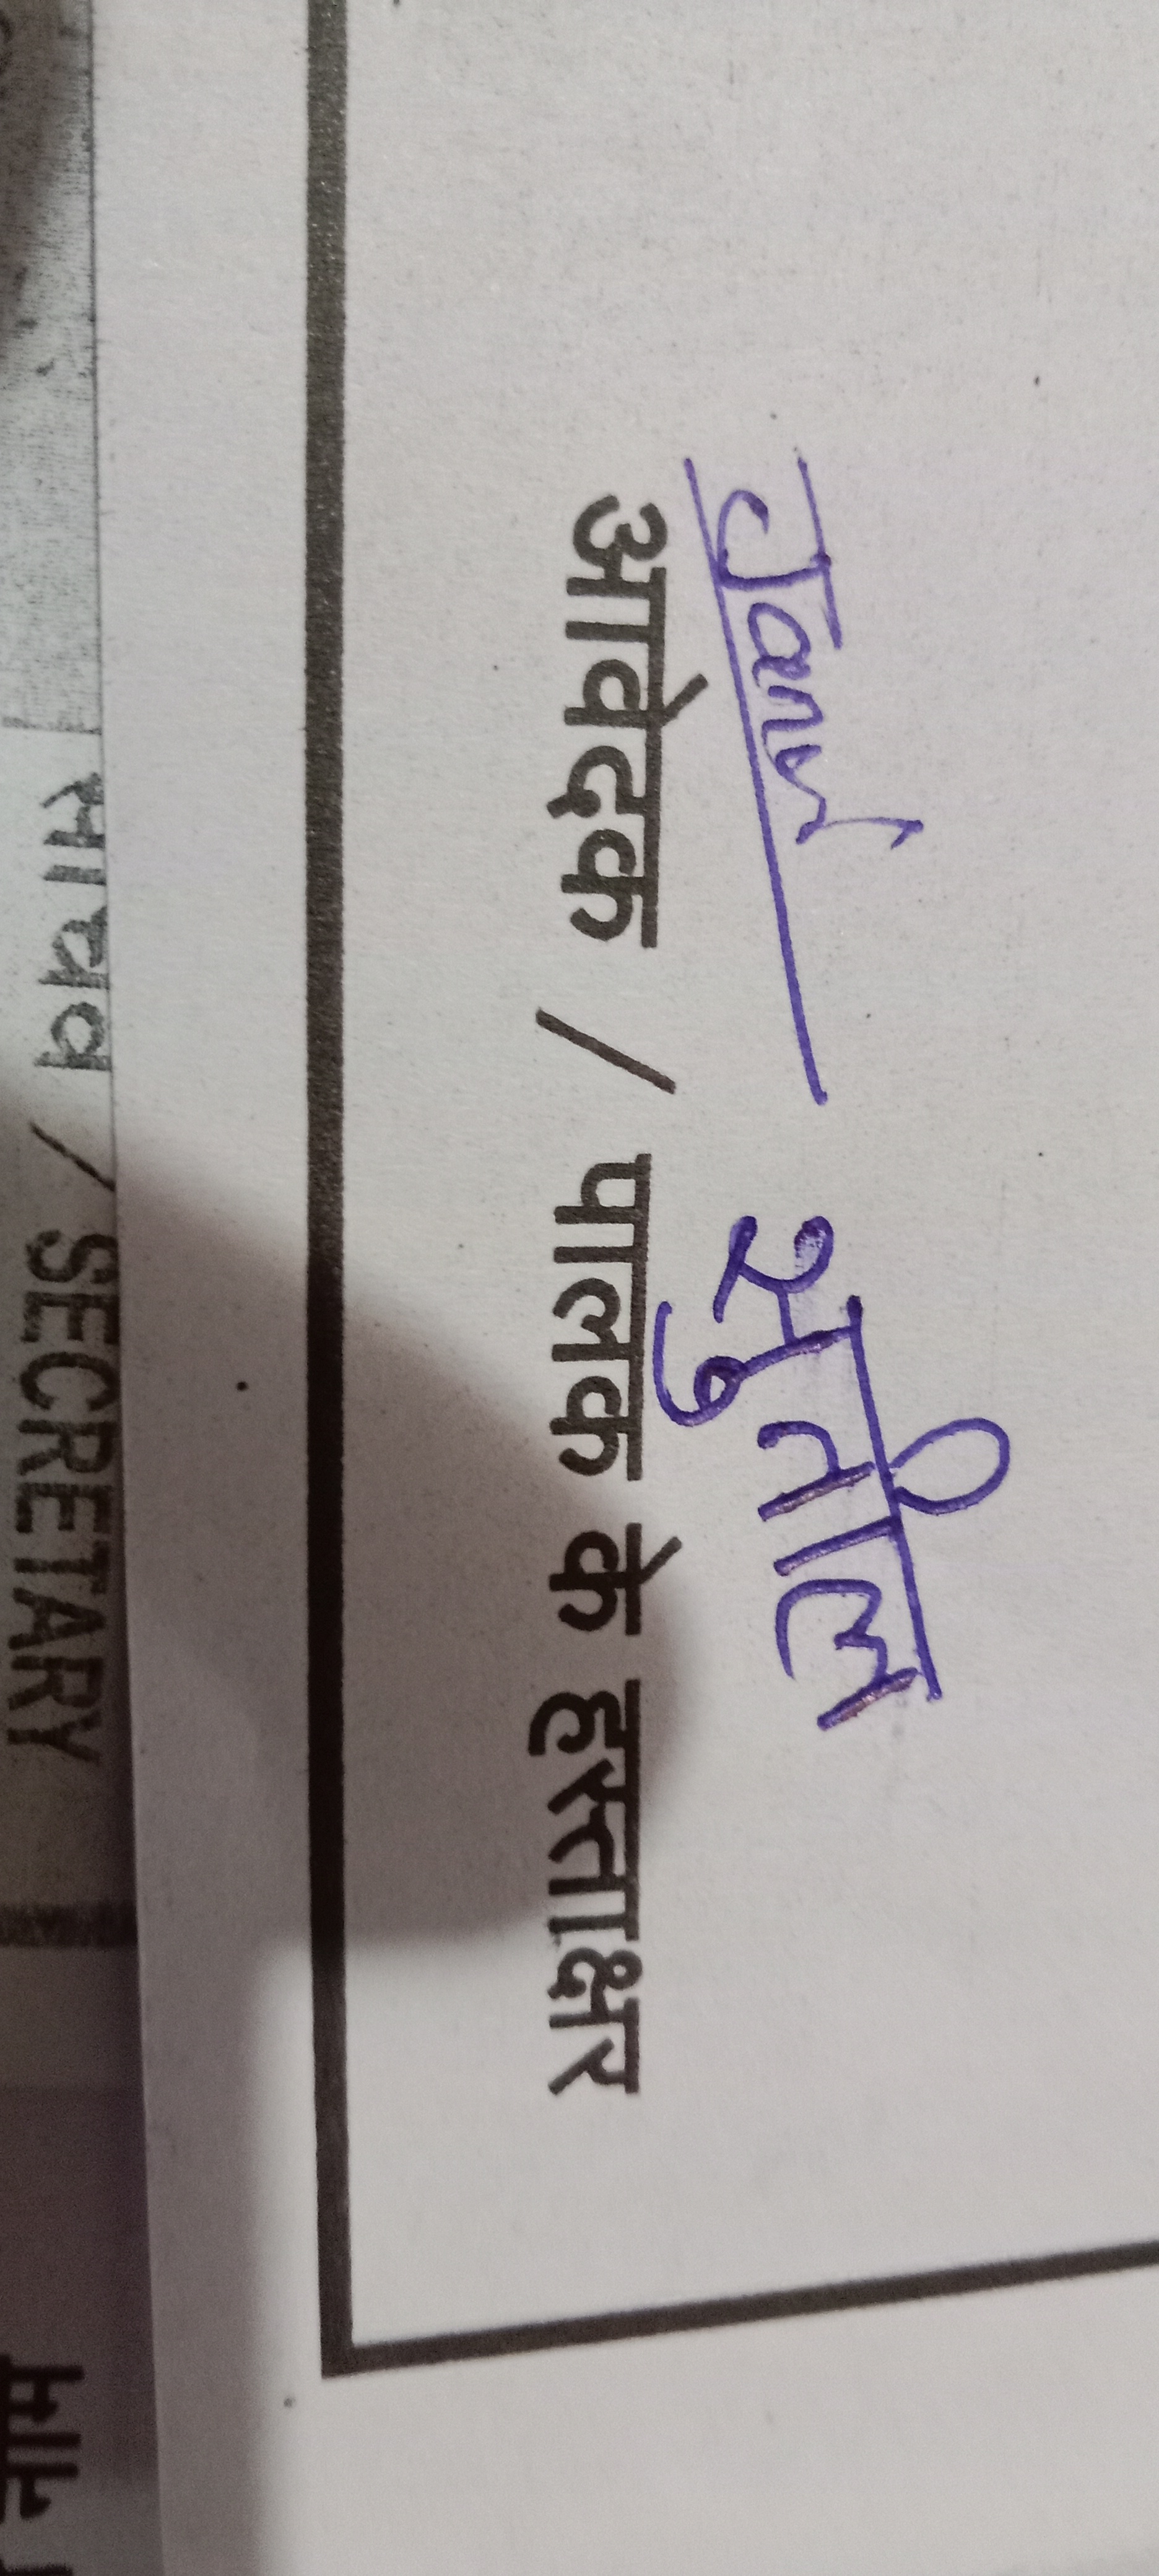 Janvi सुनील
आवेदक / पालक के हस्ताक्षर
सचिव / SECRETARY